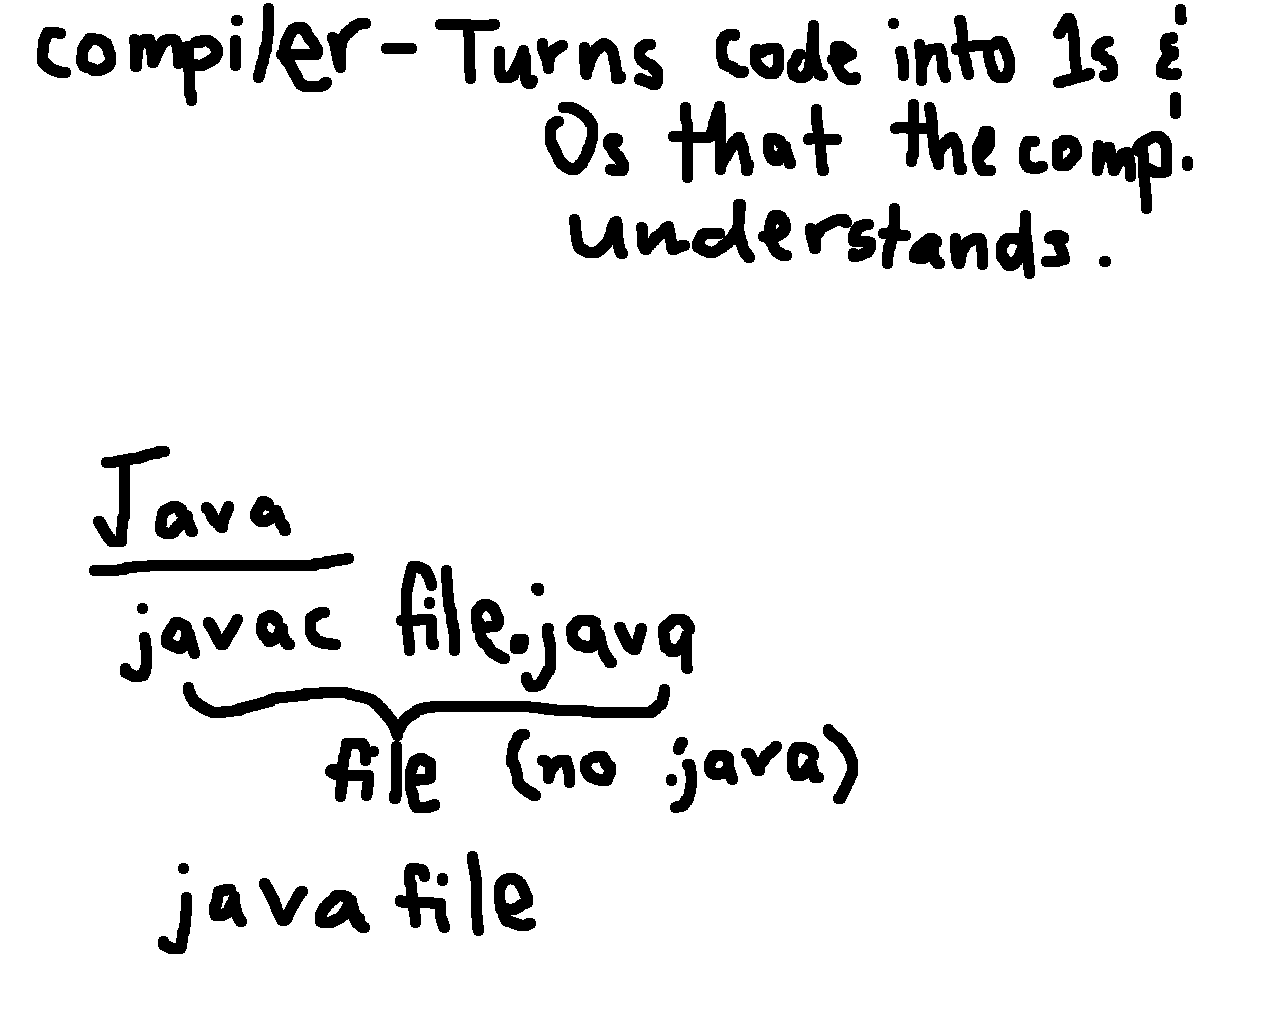 compiler - Turns code into 1s &
0s that the comp.
understands.
Java
javac file.java
file (no .java)
java file